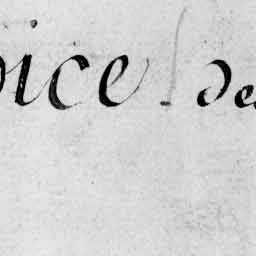 oice de